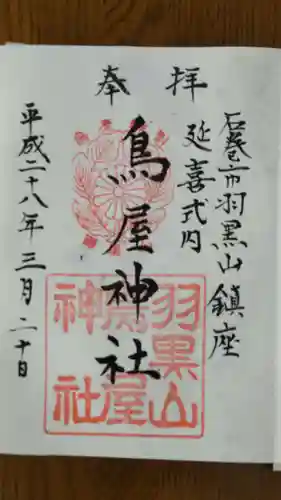 奉拝
石巻市羽黒山鎮座
延喜式内
鳥屋神社
羽黒山
鳥屋
神社
平成二十八年三月二十日